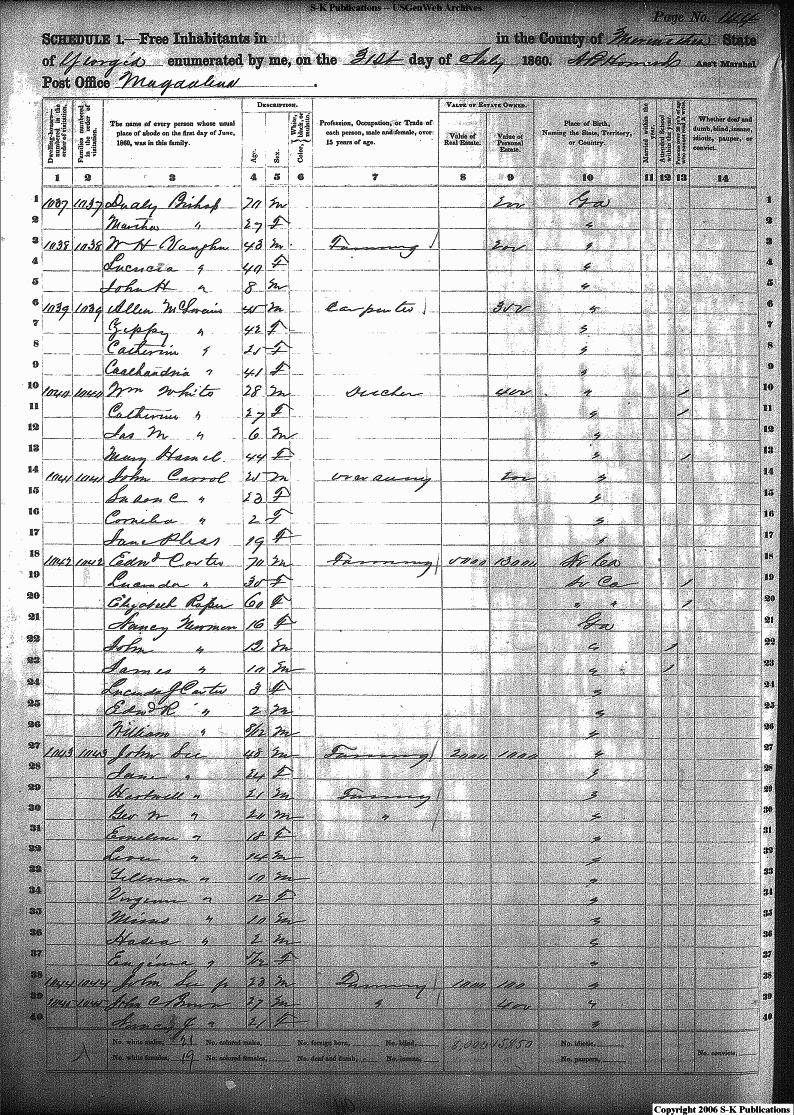 S-K Publications -- USGenWeb Archives
Page No. 144
SCHEDULE 1.—Free Inhabitants in in the County of Meriwether State
of Georgia enumerated by me, on the 31st day of July 1860. Ass't Marshal
Post Office
DESCRIPTION. VALUE OF ESTATE OWNED.
Dwelling-houses— numbered in the order of visitation.
Families numbered in the order of visitation.
The name of every person whose usual place of abode on the first day of June, 1860, was in this family.
Age.
Sex.
Color, White, black, or mulatto.
Profession, Occupation, or Trade of each person, male and female, over 15 years of age.
Value of Real Estate.
Value of Personal Estate.
Place of Birth, Naming the State, Territory, or Country.
Married within the year.
Attended School within the year.
Whether deaf and dumb, blind, insane, idiotic, pauper, or convict.
1 2 3 4 5 6 7 8 9 10 11 12 13 14
1 1037 1037 Bishop 70 m 200 Ga 1
2 Martha " 27 F " 2
3 1038 1038 W H Vaughn 43 m Farming 200 " 3
4 " 40 F " 4
5 John H " 8 m " 5
6 1039 1039 Allen 45 m Carpenter 300 " 6
7 Zeppy " 42 F " 7
8 Catherine " 25 F " 8
9 " 41 F " 9
10 1040 1040 Wm White 28 m 400 " 1 10
11 Catherine " 27 F " 1 11
12 Jas M " 6 m " 12
13 Mary 44 F " 1 13
14 1041 1041 John Carrol 25 m 200 " 14
15 Susan C " 23 F " 15
16 Cornelia " 2 F " 16
17 Jane 19 F " 17
18 1042 1042 Edwd Carter 70 m Farming 5000 13000 18
19 Lucinda " 35 F 1 19
20 Elizabeth Raper 60 F " " 1 20
21 Nancy Newman 16 F Ga 21
22 John " 12 m " 1 22
23 James " 10 m " 1 23
24 Lucinda J Carter 3 F " 24
25 Edwd R " 2 m " 25
26 William " 8/12 m " 26
27 1043 1043 John Lee 48 m Farming 2000 1000 " 27
28 Jane " 24 F " 28
29 Hartwell " 21 m Farming " 29
30 Geo W " 20 m " " 30
31 Emeline " 18 F " 31
32 " 14 m " 32
33 " 10 m " 33
34 " 12 F " 34
35 " 10 m " 35
36 " 2 m " 36
37 " F " 37
38 1044 1044 John Lee jr 23 m Farming 1000 100 " 38
39 1045 1045 John C Brown 27 m " 400 " 39
40 Nancy J " 21 F " 40
No. white males, 21 No. colored males, No. foreign born, No. blind, 8,000 15,850 No. idiotic,
No. white females, 19 No. colored females, No. deaf and dumb, No. insane, No. paupers, No. convicts,
Copyright 2006 S-K Publications